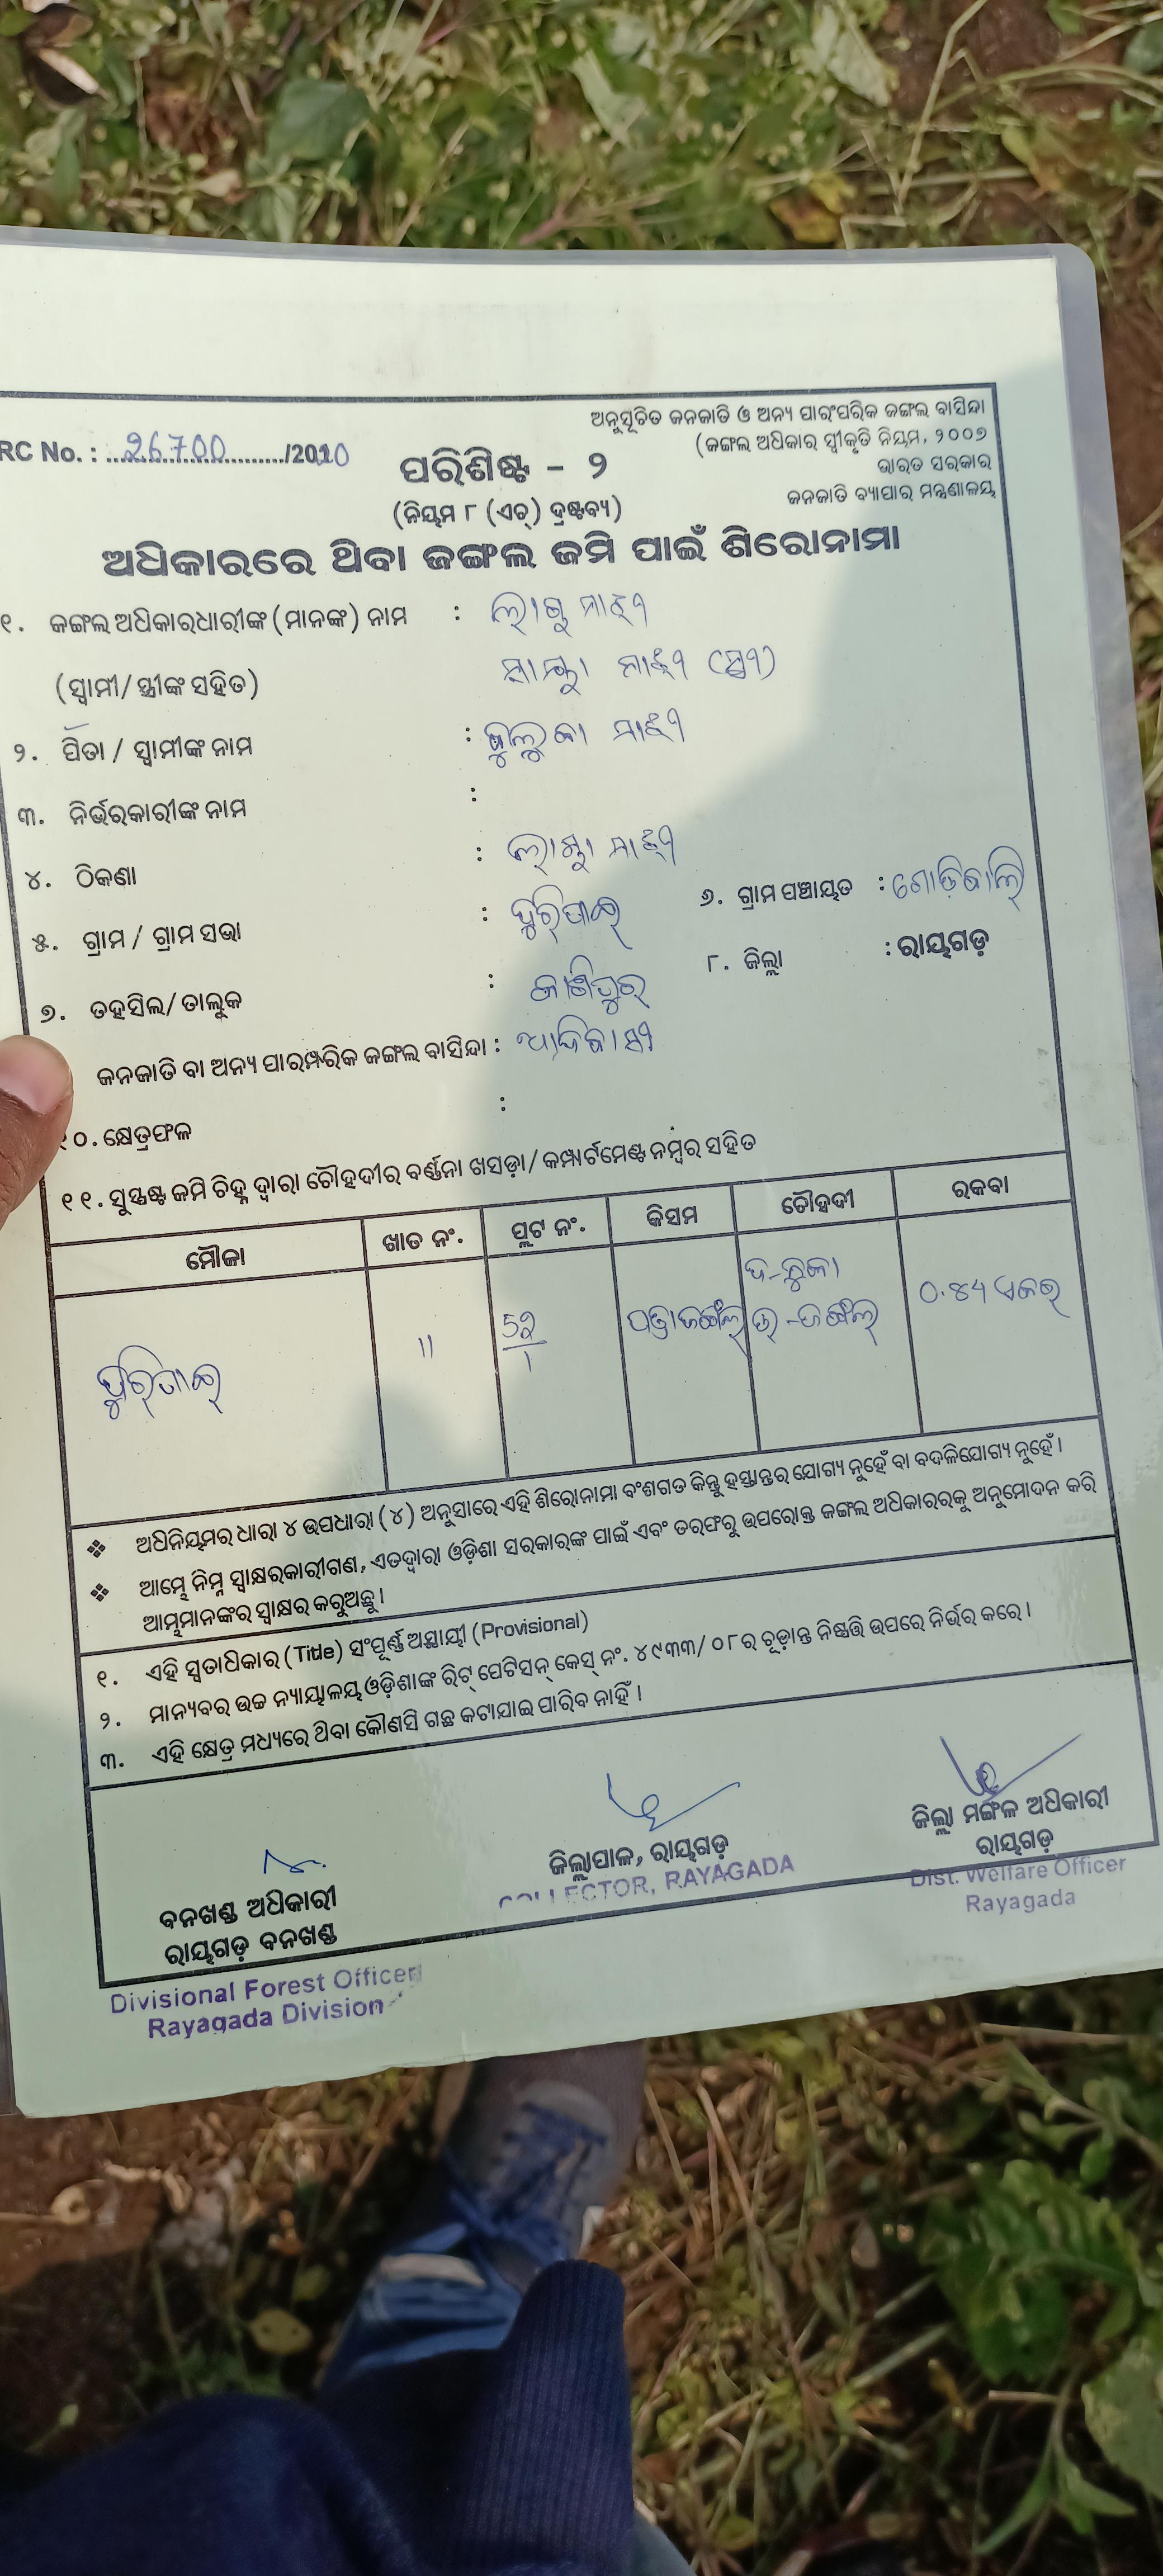 ଅନୁସୂଚିତ ଜନଜାତି ଓ ଅନ୍ୟ ପାରଂପରିକ ଜଙ୍ଗଲ ବାସିନ୍ଦା
(ଜଙ୍ଗଲ ଅଧିକାର ସ୍ୱୀକୃତି ନିୟମ, ୨୦୦୭
ଭାରତ ସରକାର
ଜନଜାତି ବ୍ୟାପାର ମନ୍ତ୍ରଣାଳୟ
RC No. : 26700/2010
ପରିଶିଷ୍ଟ - ୨
(ନିୟମ ୮ (ଏଚ୍) ଦ୍ରଷ୍ଟବ୍ୟ)
ଅଧିକାରରେ ଥିବା ଜଙ୍ଗଲ ଜମି ପାଇଁ ଶିରୋନାମା
୧. ଜଙ୍ଗଲ ଅଧିକାରଧାରୀଙ୍କ (ମାନଙ୍କ) ନାମ : ମାଝୀ
(ସ୍ୱାମୀ/ ସ୍ତ୍ରୀଙ୍କ ସହିତ) ମାଝୀ (ସ୍ତ୍ରୀ)
୨. ପିତା / ସ୍ୱାମୀଙ୍କ ନାମ : ମାଝୀ
୩. ନିର୍ଭରକାରୀଙ୍କ ନାମ :
୪. ଠିକଣା : ମାଝୀ
୫. ଗ୍ରାମ / ଗ୍ରାମ ସଭା : ୬. ଗ୍ରାମ ପଞ୍ଚାୟତ : ଗୋଡ଼ିବାଲି
୭. ତହସିଲ/ ତାଲୁକ : କାଶିପୁର ୮. ଜିଲ୍ଲା : ରାୟଗଡ଼
ଜନଜାତି ବା ଅନ୍ୟ ପାରମ୍ପରିକ ଜଙ୍ଗଲ ବାସିନ୍ଦା : ଆଦିବାସୀ
୧୦. କ୍ଷେତ୍ରଫଳ :
୧୧. ସୁସ୍ପଷ୍ଟ ଜମି ଚିହ୍ନ ଦ୍ୱାରା ଚୌହଦୀର ବର୍ଣ୍ଣନା ଖସଡ଼ା/ କମ୍ପାର୍ଟମେଣ୍ଟ ନମ୍ବର ସହିତ
ମୌଜା ଖାତ ନଂ. ପ୍ଲଟ ନଂ. କିସମ ଚୌହଦୀ ରକବା
11 ପତ୍ରାଜଙ୍ଗଲ ଉ-ଜଙ୍ଗଲ ଏକର
❖ ଅଧିନିୟମର ଧାରା ୪ ଉପଧାରା (୪) ଅନୁସାରେ ଏହି ଶିରୋନାମା ବଂଶଗତ କିନ୍ତୁ ହସ୍ତାନ୍ତର ଯୋଗ୍ୟ ନୁହେଁ ବା ବଦଳିଯୋଗ୍ୟ ନୁହେଁ ।
❖ ଆମ୍ଭେ ନିମ୍ନ ସ୍ୱାକ୍ଷରକାରୀଗଣ, ଏତଦ୍ୱାରା ଓଡ଼ିଶା ସରକାରଙ୍କ ପାଇଁ ଏବଂ ତରଫରୁ ଉପରୋକ୍ତ ଜଙ୍ଗଲ ଅଧିକାରରକୁ ଅନୁମୋଦନ କରି
ଆମ୍ଭମାନଙ୍କର ସ୍ୱାକ୍ଷର କରୁଅଛୁ ।
୧. ଏହି ସ୍ୱତାଧିକାର (Title) ସଂପୂର୍ଣ୍ଣ ଅସ୍ଥାୟୀ (Provisional)
୨. ମାନ୍ୟବର ଉଚ୍ଚ ନ୍ୟାୟାଳୟ ଓଡ଼ିଶାଙ୍କ ରିଟ୍ ପେଟିସନ୍ କେସ୍ ନଂ. ୪୯୩୩/ ୦୮ର ଚୂଡ଼ାନ୍ତ ନିଷ୍ପତ୍ତି ଉପରେ ନିର୍ଭର କରେ ।
୩. ଏହି କ୍ଷେତ୍ର ମଧ୍ୟରେ ଥିବା କୌଣସି ଗଛ କଟାଯାଇ ପାରିବ ନାହିଁ ।
ବନଖଣ୍ଡ ଅଧିକାରୀ
ରାୟଗଡ଼ ବନଖଣ୍ଡ
Divisional Forest Officer
Rayagada Division
ଜିଲ୍ଲାପାଳ, ରାୟଗଡ଼
COLLECTOR, RAYAGADA
ଜିଲ୍ଲା ମଙ୍ଗଳ ଅଧିକାରୀ
ରାୟଗଡ଼
Dist. Welfare Officer
Rayagada